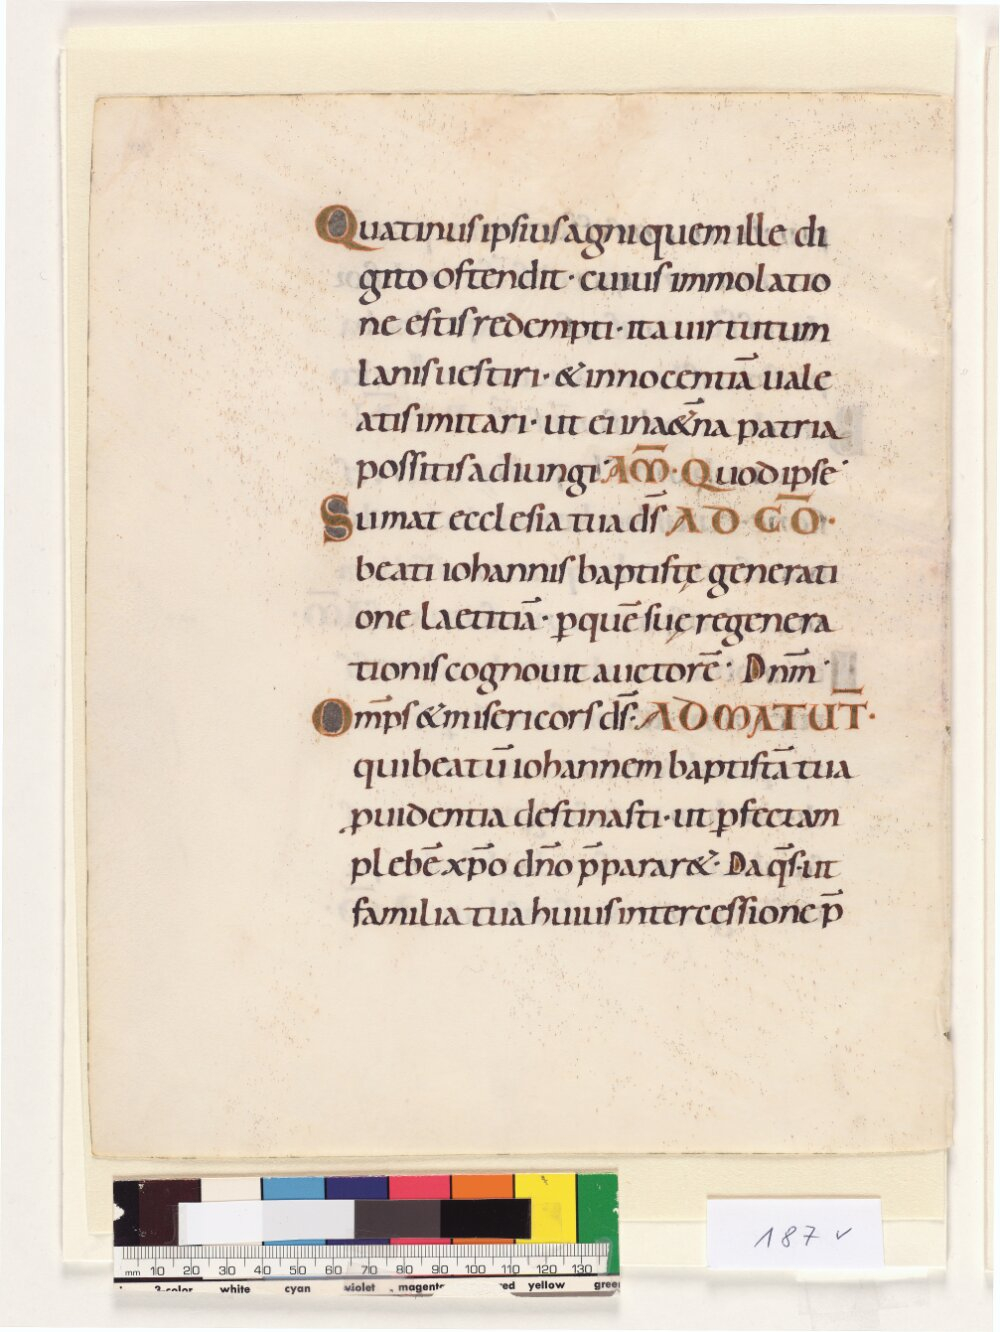 Quatinus ipsius agni quem ille di
gito ostendit · cuius immolatio
ne estis redempti · ita uirtutum
lanis uestiri · & innocentiā uale
atis imitari · ut ei in a&̄na patria
possitis adiungi · AM̅ · Quod ipse ·
Sumat ecclesia tua ds̄ AD CŌ ·
beati iohannis baptistę generati
one laetitiā · ꝑquē suę regenera
tionis cognouit auctorē · Dnm̄ ·
Om̄ps & misericors ds̄ · AD MATUT̄ ·
qui beatū iohannem baptistā tua
ꝓuidentia destinasti · ut ꝑfectam
plebē xp̄o dn̄o p̄parar& · Da qs̄ · ut
familia tua huius intercessione p̄
187 v
mm 10 20 30 40 50 60 70 80 90 100 110 120 130
3-color white cyan violet magenta red yellow green